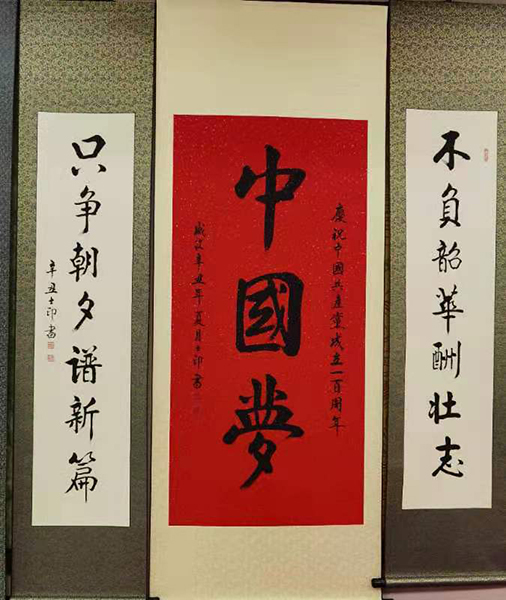 不负韶華酬壮志
慶祝中國共產黨成立一百周年
中國夢
歲次辛丑年夏月士印書
只争朝夕谱新篇
辛丑士印書